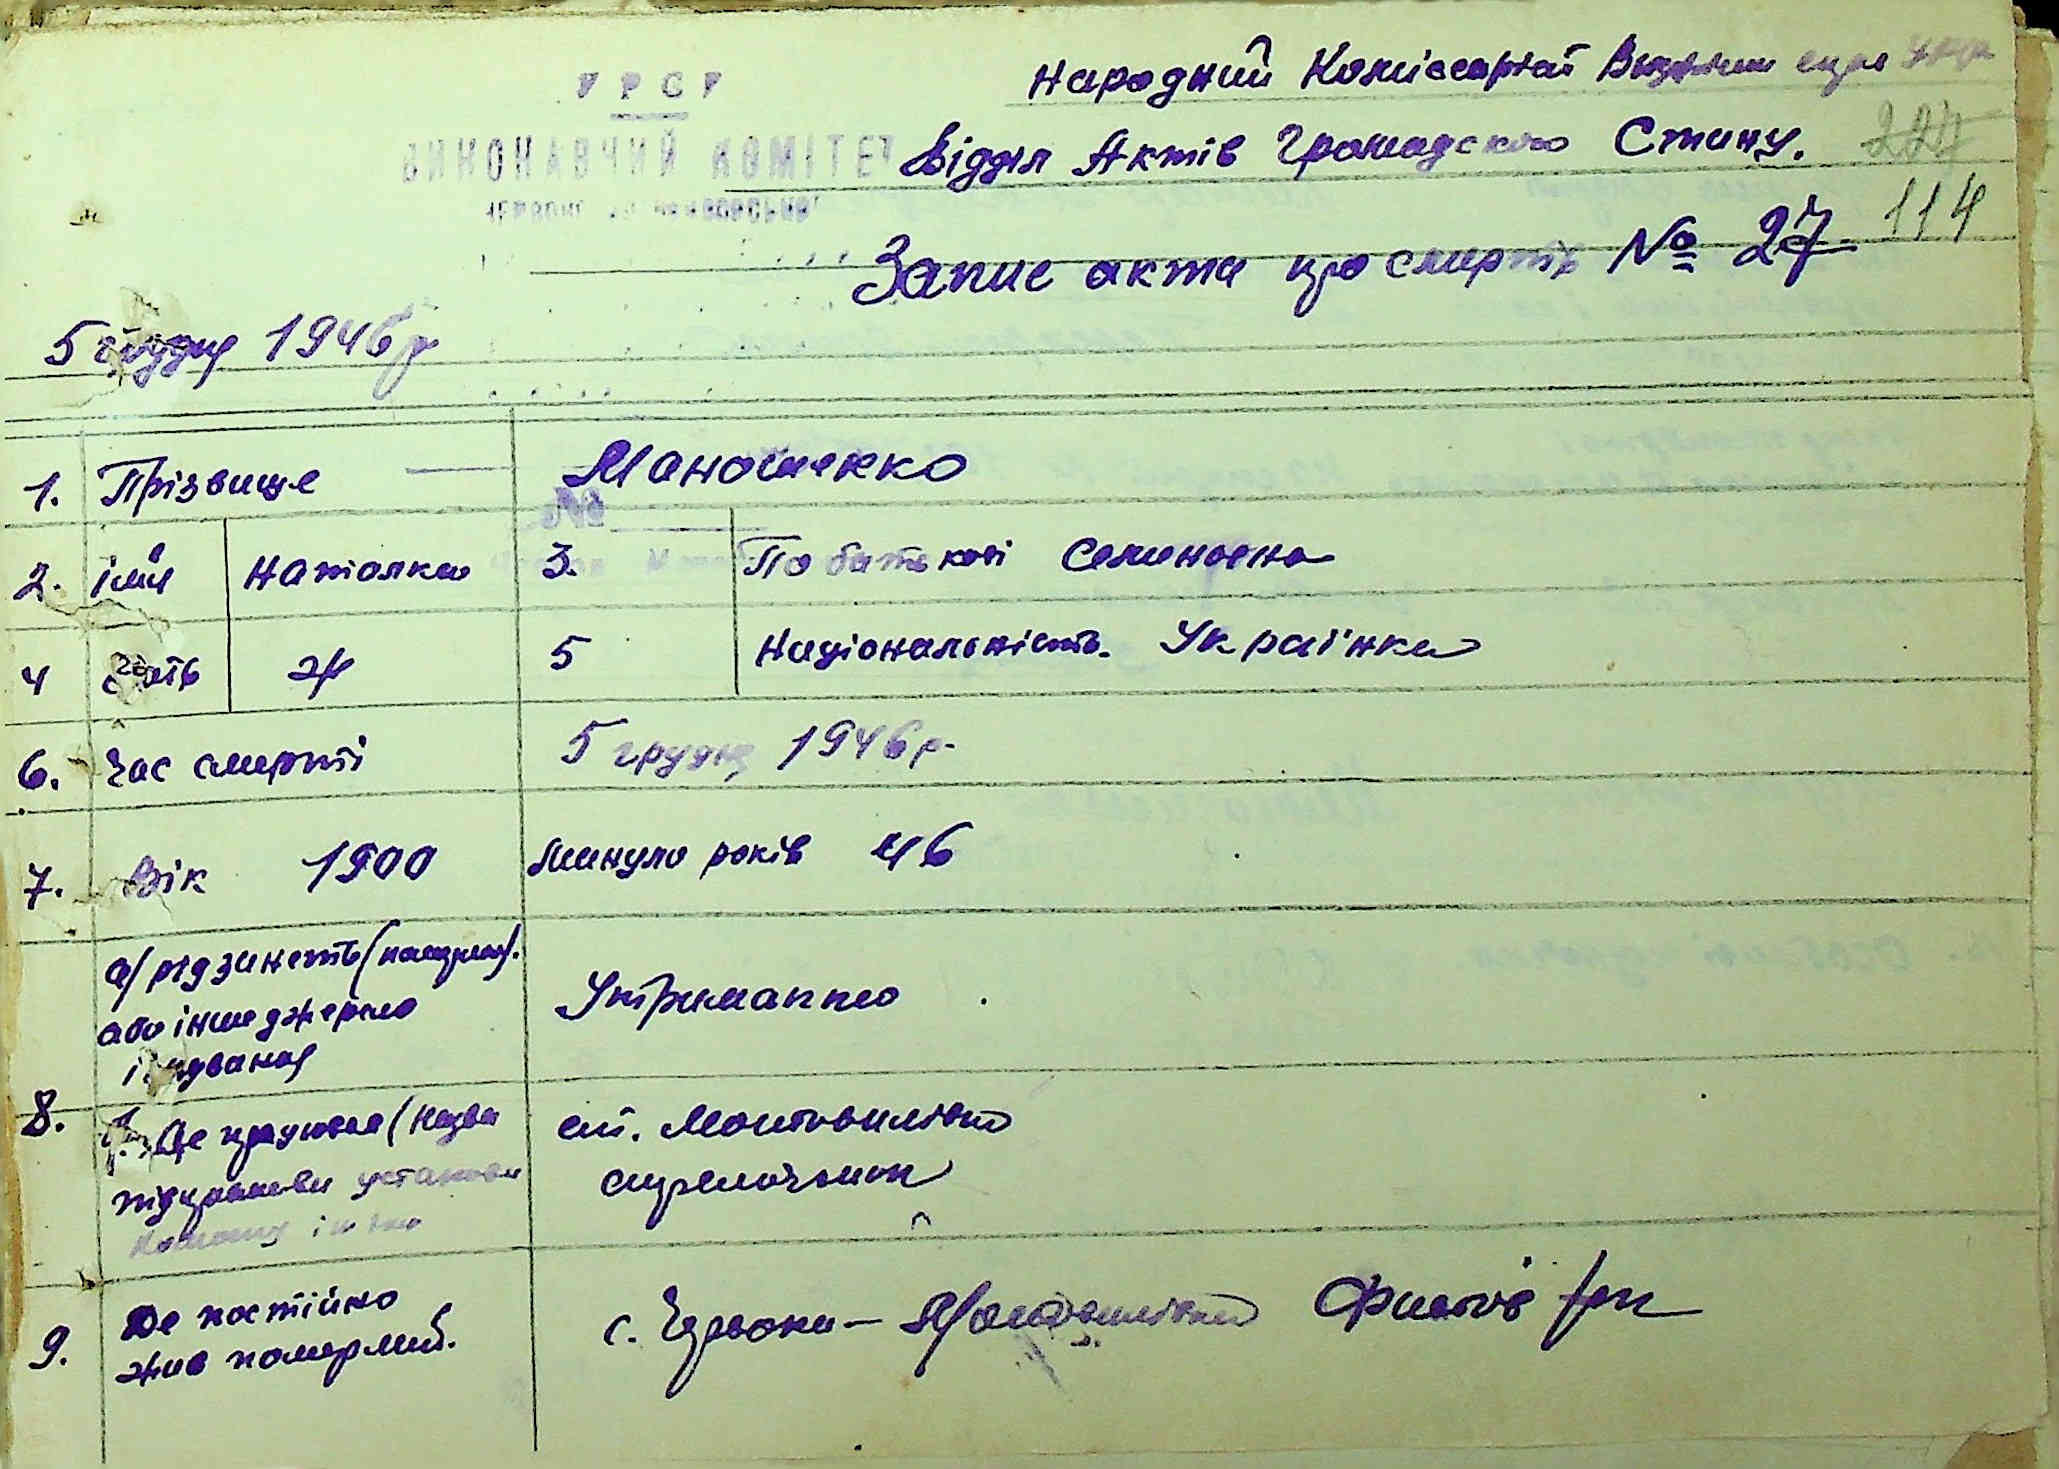 УРСР
ВИКОНАВЧИЙ КОМІТЕТ
Народний Коміссаріат Внутрішн справ
Відділ Актів Громадского Стану.
227
114
Запис акта про смерть № 27
5 грудня 1946 р
1. Прізвище Маношенко
2. імя Наталка 3. По батькові Семеновна
4 Стать ж 5 Національність. Українка
6. Час смерті 5 грудня 1946 р.
7. Вік 1900 Минуло років 46
8. а/
або інше джерело
існування
Утриманню
Де працював (назва
установи
ст. Мотовилівка
9. Де постійно
жив померлий.
с. Червона - Мотовилівка Фастів р-н